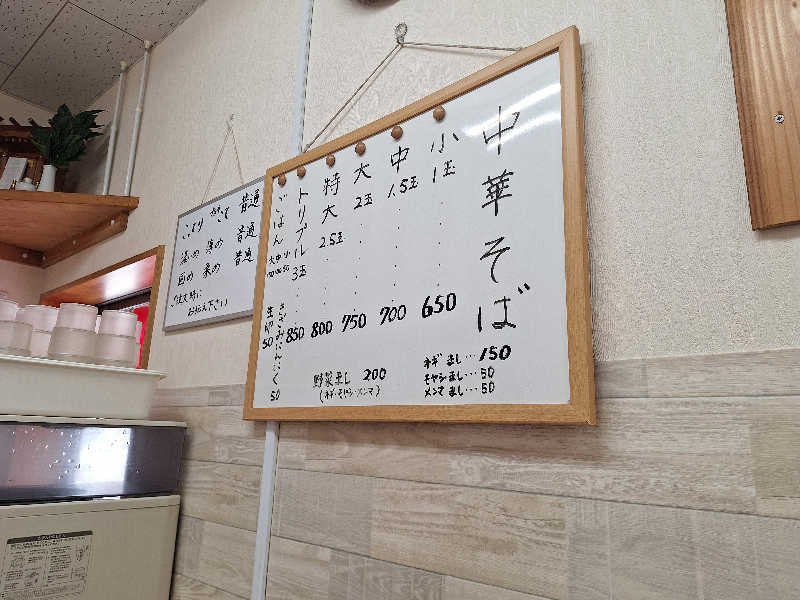 中華そば
小 1玉 650
中 1.5玉 700
大 2玉 750
特大 2.5玉 800
トリプル 3玉 850
ごはん 大中小
生卵 50
きざみにんにく 50
ネギまし…150
モヤシまし…50
メンマまし…50
野菜まし 200
(ネギ・モヤシ・メンマ)
こってり 普通
濃いめ 薄め 普通
固め 柔め 普通
ご注文時に
お伝え下さい